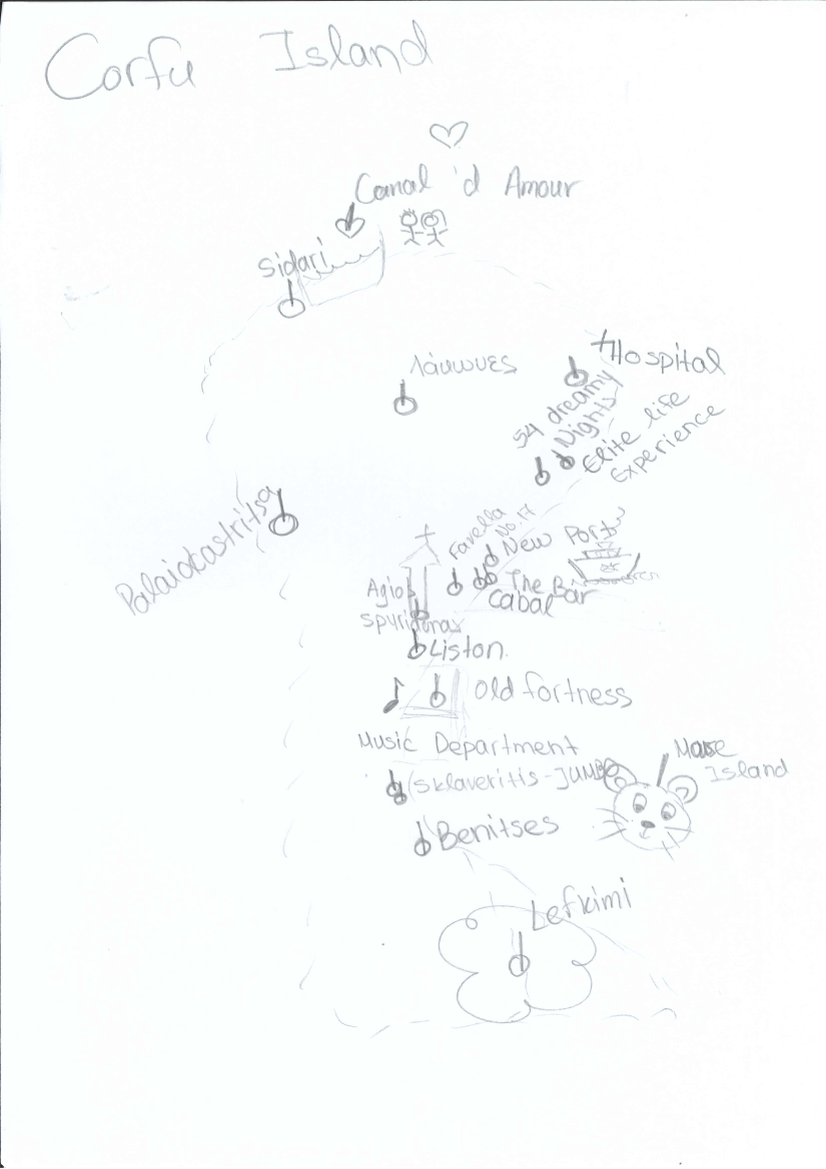 Corfu Island
Canal 'd Amour
Sidari
Λάκωνες
Hospital
54 dreamy
Nights
Elite life
Experience
Palaiokastritsa
Favella
No.17
New Port
The Bar
Cabal
Agios
Spyridonas
Liston
Old fortness
Music Department
(Sklaveritis-JUMBO
Mouse
Island
Benitses
Lefkimi